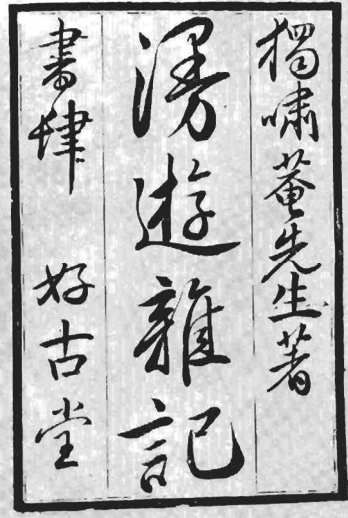 獨嘯菴先生著
漫遊雜記
書肆 好古堂